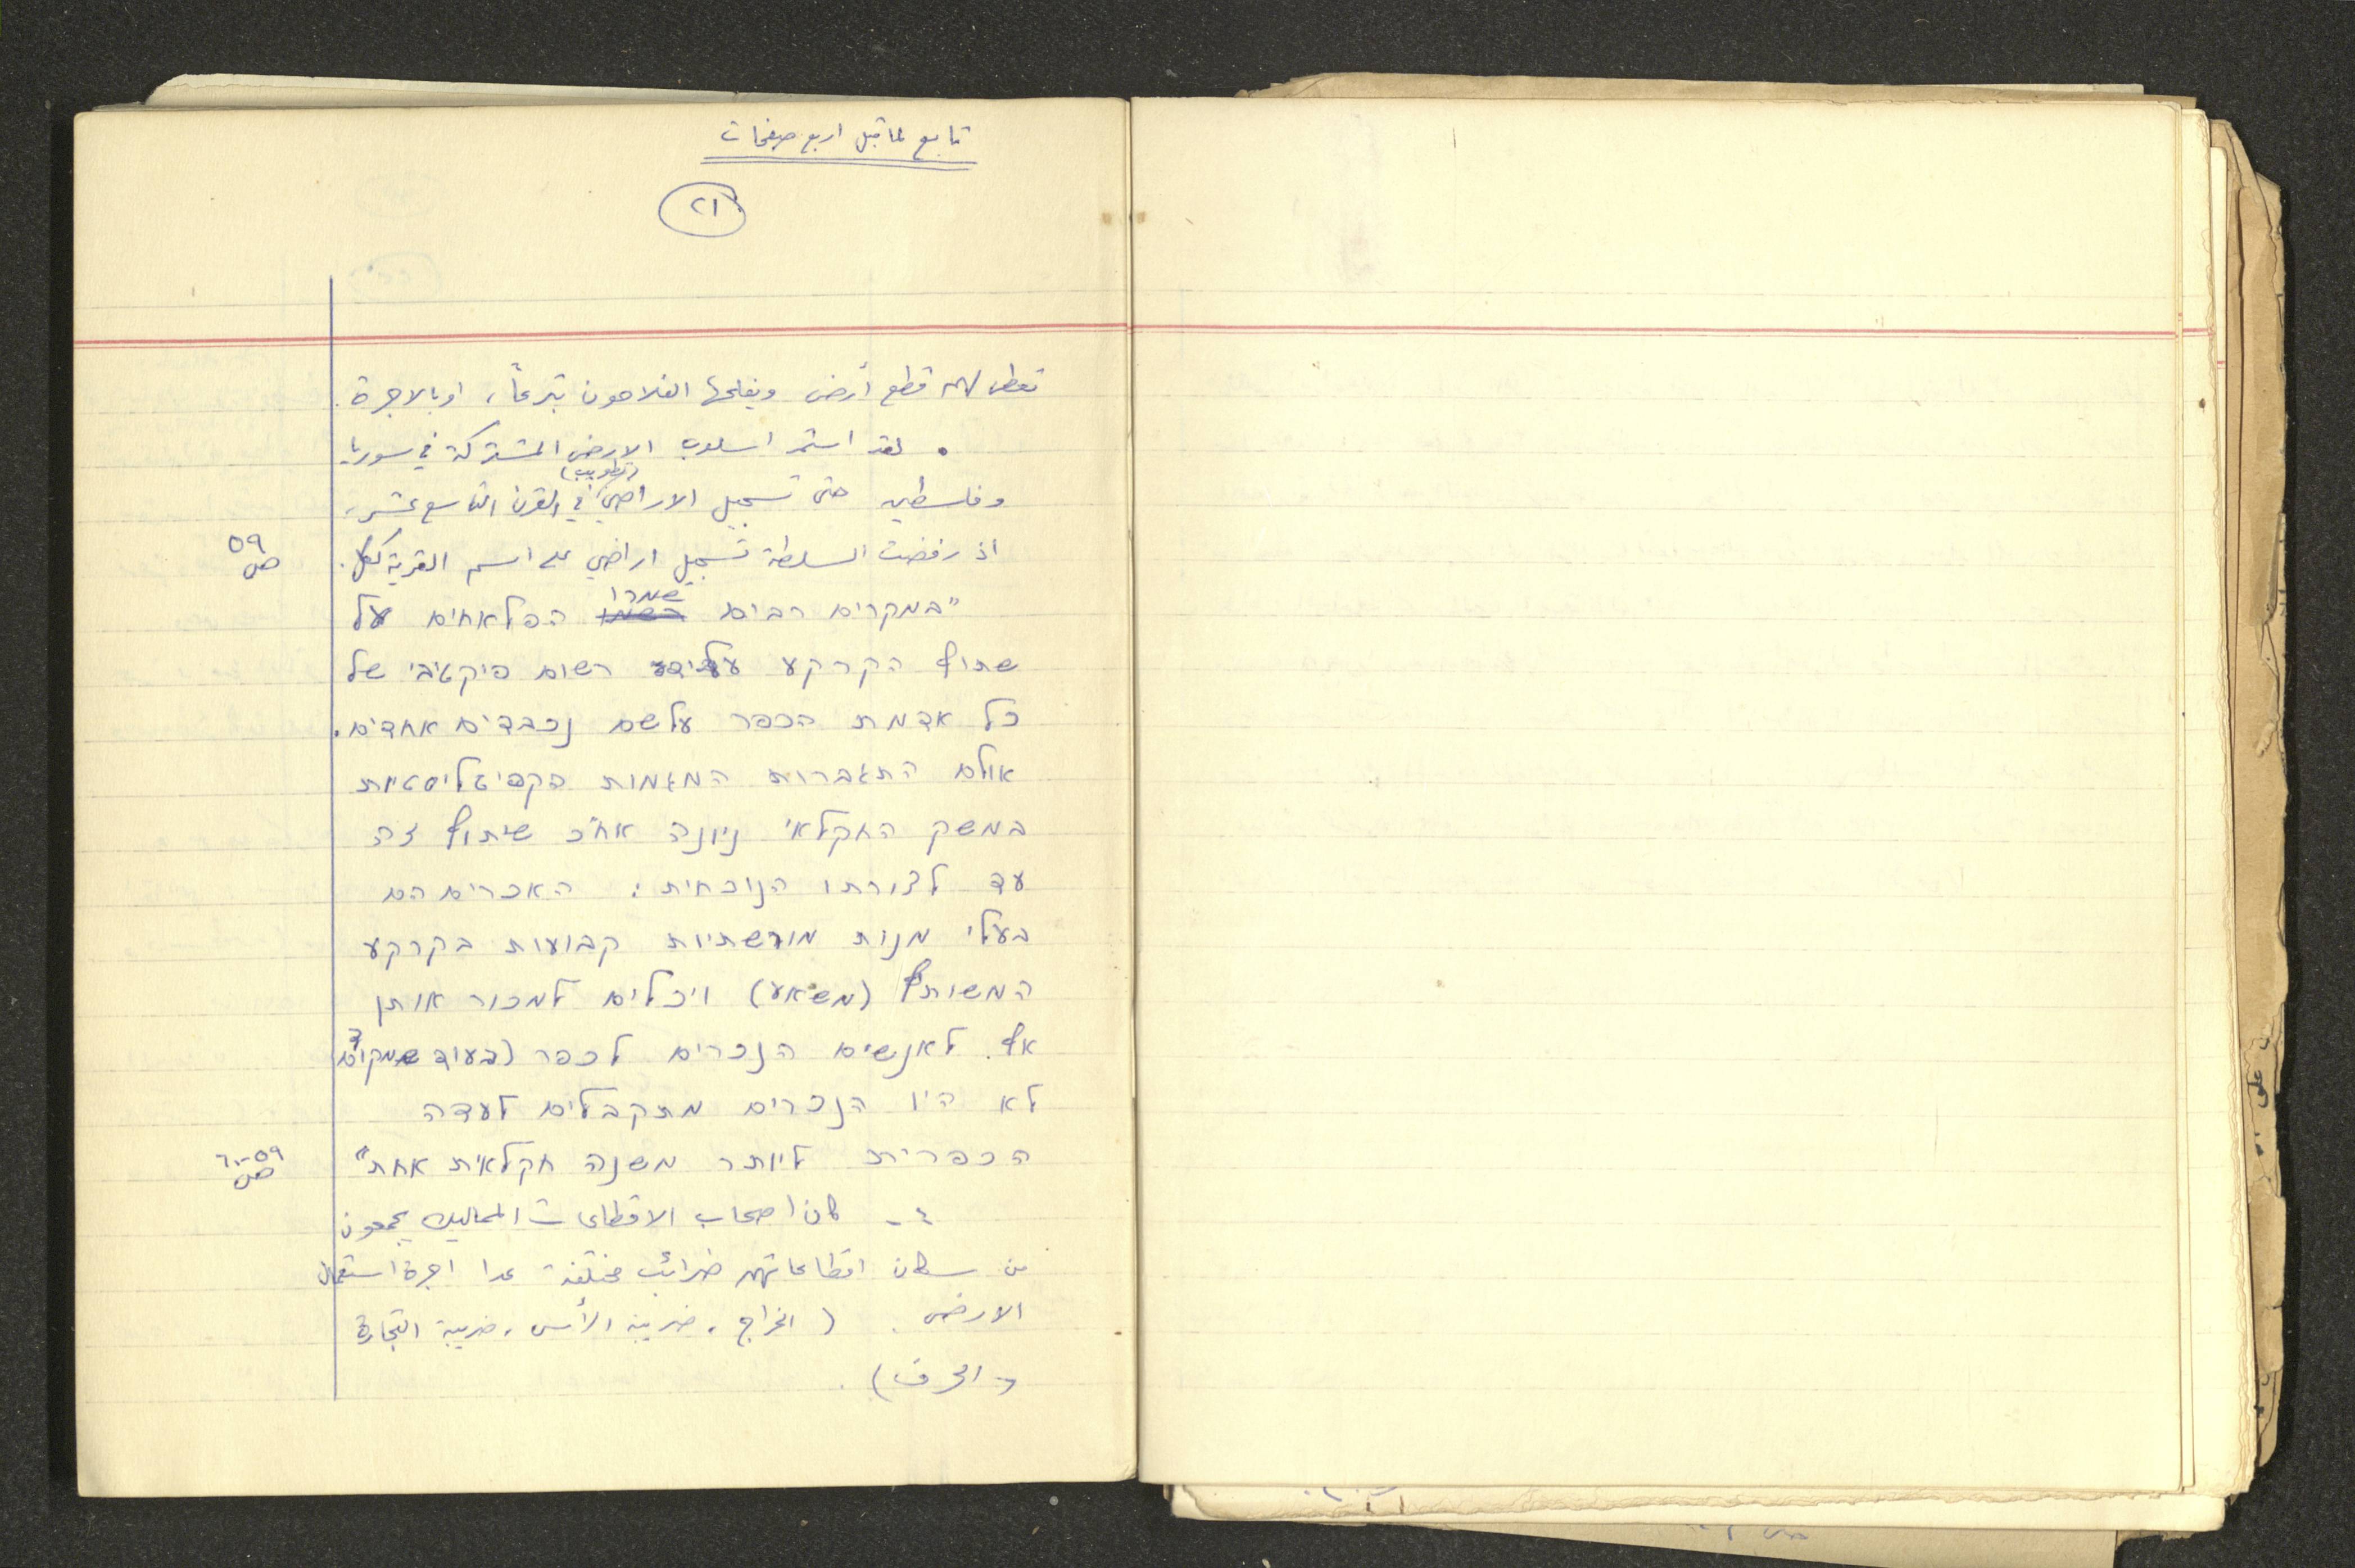 تابع لما قبل اربع صفحات
٢١
تعطى لهم قطع أرض ويفلحها الفلاحون تبرعاً، او بالاجرة.
• لقد استمر اسلوب الارض المشتركة في سوريا
وفلسطين حتى تسجيل الاراضي (تطويب) في القرن التاسع عشر،
اذ رفضت السلطة تسجيل اراضي على اسم القرية ككل.
ص ٥٩
"במקרים רבים שמרו הפלאחים על
שתוף הקרקע ע"י רשום פיקטיבי של
כל אדמת הכפר על שם נכבדים אחדים.
אולם התגברות המגמות הקפיטליסטיות
במשק החקלאי ניונה אח"כ שיתוף זה
עד לצורתו הנוכחית: האכרים הם
בעלי מנות מורשתיות קבועות בקרקע
המשותף (משאע) ויכלים למכור אותן
אף לאנשים הנכרים לכפר (בעוד שמקודם
לא היו הנכרים מתקבלים לעדה
הכפרית ליותר משנה חקלאית אחת"
ص ٥٩-٦٠
٤- كان اصحاب الاقطاعات المماليك يجمعون
من سكان اقطاعاتهم ضرائب مختلفة عدا اجرة استعمال
الارض. (الخراج، ضريبة الرأس، ضريبة التجارة
والحرف).